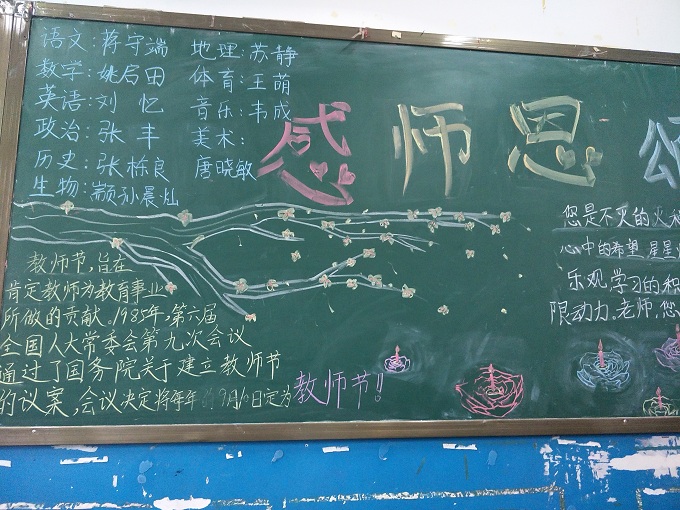 语文：蒋守端
数学：姚启田
英语：刘忆
政治：张丰
历史：张栋良
生物：颛孙晨灿
地理：苏静
体育：王萌
音乐：韦成
美术：
唐晓敏
感师恩颂
教师节，旨在
肯定教师为教育事业
所做的贡献。1985年，第六届
全国人大常委会第九次会议
通过了国务院关于建立教师节
的议案，会议决定将每年9月10日定为
教师节！！
您是不灭的火
心中的希望，星星
乐观，学习的积
限动力。老师，您